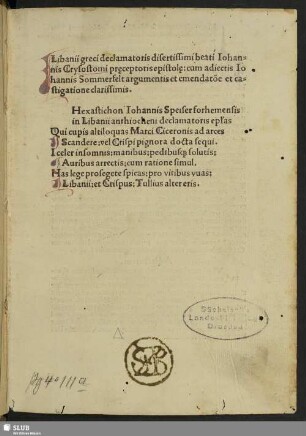 Libanii greci declamatoris disertissimi beati Iohan-
nis Crysostomi preceptoris epistole: cum adiectis Io
hannis Sommerfelt argumentis et emendatõe et ca-
stigatione clarissimis.
Hexastichon Iohannis Speiser forhemensis
in Libanii anthiocheni declamatoris eplãs
Qui cupis altiloquas Marci Ciceronis ad arces
Scandere: vel Crispi pignora docta sequi.
I celer insomnis: manibus: pedibusq; solutis:
Auribus arrectis: cum ratione simul.
Has lege prosegete spicas: pro vitibus vuas:
Libanii: et Crispus: Tullius alter eris.
Sächsische
Landesbibl.
Dresden
SLUB